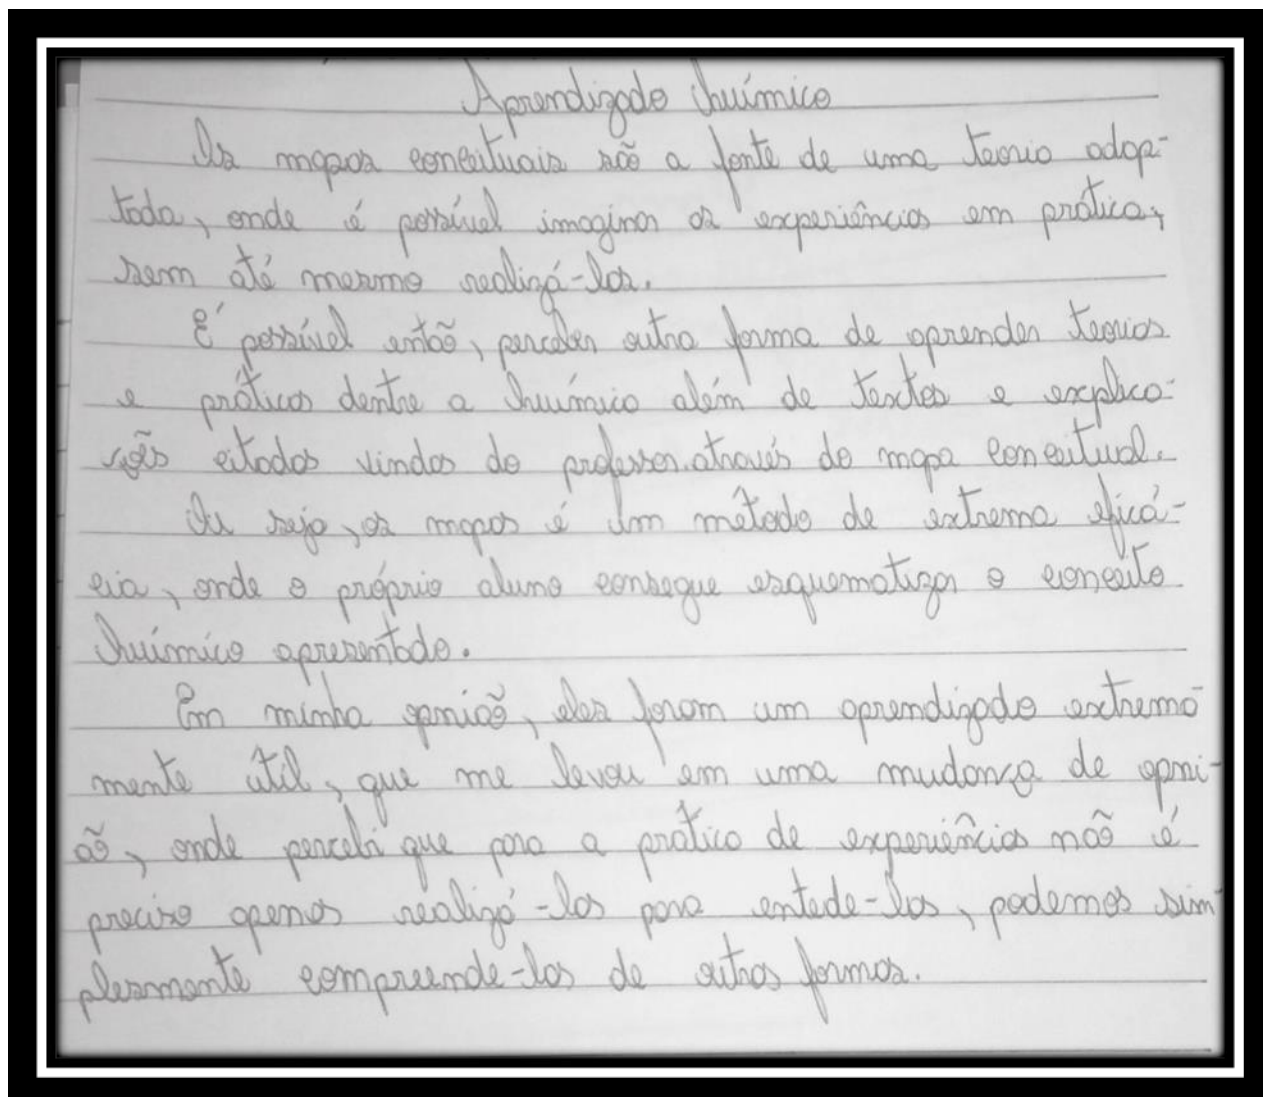 Aprendizado Químico
Os mapas conceituais são a fonte de uma teoria adap-
tada, onde é possível imaginar as experiências em prática,
sem até mesmo realizá-las.
É possível então, perceber outra forma de aprender teorias
e práticas dentre a Química além de textos e explica-
ções citadas vindas do professor.através do mapa conceitual.
Ou seja, os mapas é um método de extrema eficá-
cia, onde o próprio aluno consegue esquematizar o conceito
Químico apresentado.
Em minha opnião, eles foram um aprendizado extrema-
mente útil, que me levou em uma mudança de opni-
ão, onde percebi que para a prática de experiências não é
preciso apenas realizá-las para entede-las, podemos sim-
plesmente compreende-las de outras formas.